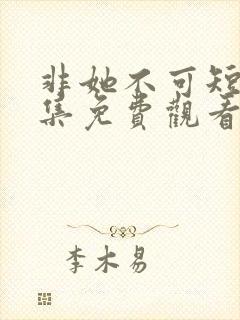 非她不可短
集免費觀看
李木易